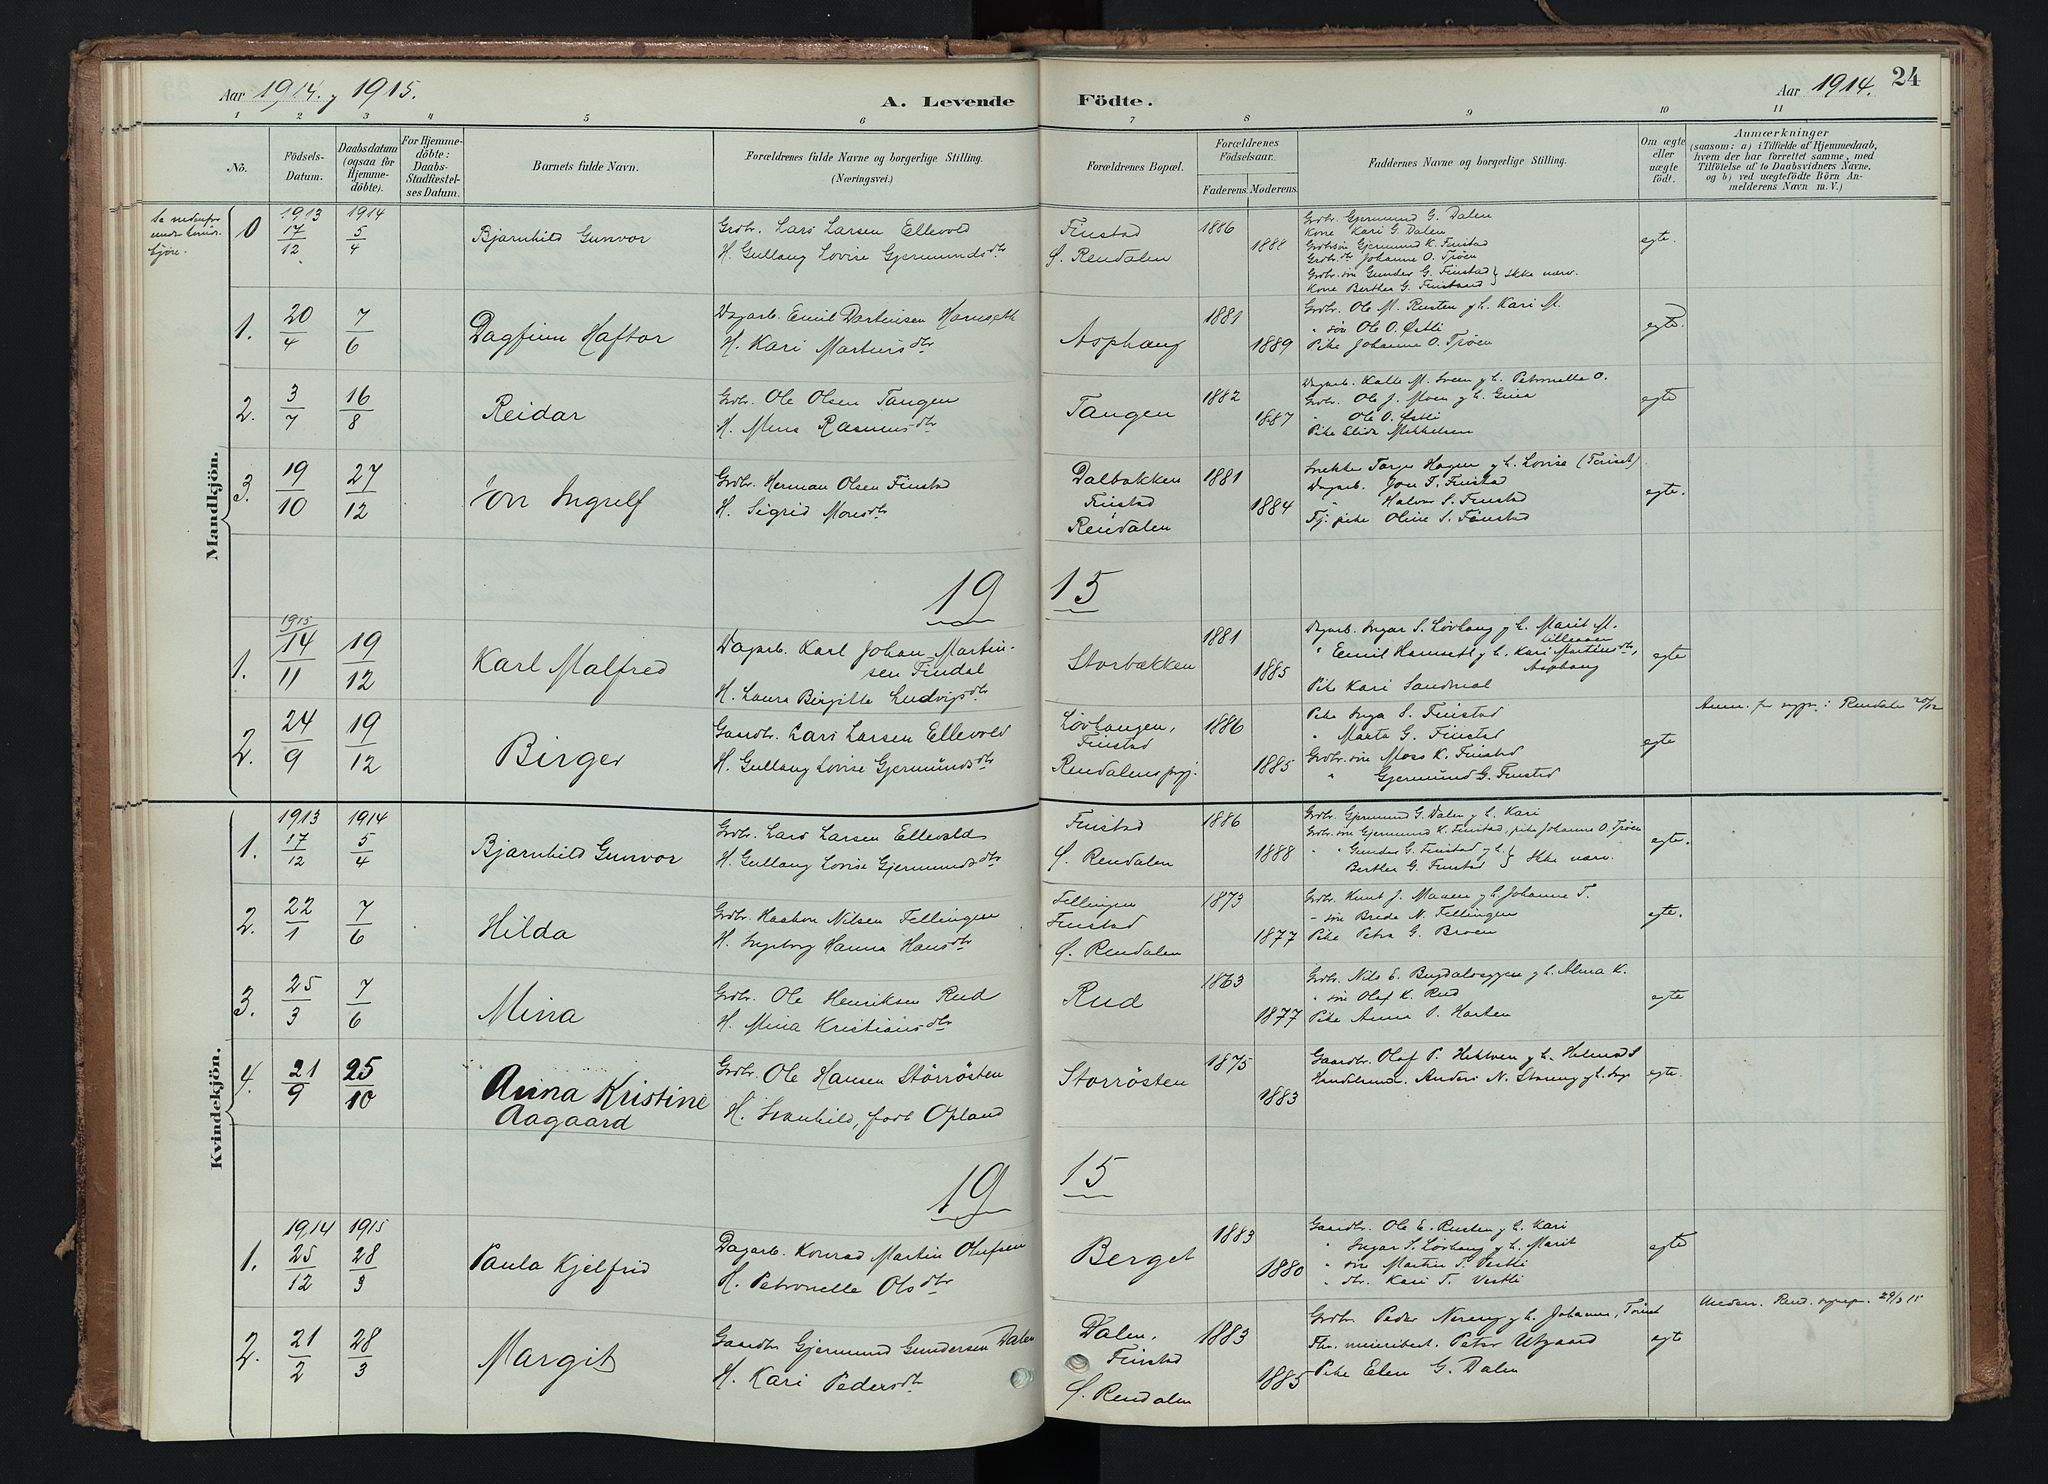 Aar 1914. y 1915.
A. Levende
Födte.
Aar 1914.
24
1 2 3 4 5 6 7 8 9 10 11
No.
Födsels-Datum.
Daabsdatum (ogsaa for Hjemme-döbte).
For Hjemme-döbte: Daabs-Stadfæstel-ses Datum.
Barnets fulde Navn.
Forældrenes fulde Navne og borgerlige Stilling.
(Næringsvei.)
Forældrenes Bopæl.
Forældrenes Födselsaar.
Faderens. Moderens.
Faddernes Navne og borgerlige Stilling.
Om ægte eller uægte födt.
Anmærkninger
(saasom: a) i Tilfælde af Hjemmedaab, hvem der har forrettet samme, med Tilföielse af to Daabsvidners Navne, og b) ved uægtefödte Börn An-melderens Navn m. V.)
Mandkjön.
se nedenfor under kvindekjön.
0 1913 17/12 1914 5/4
Bjarnhild Gunvor
Grdbr. Lars Larsen Ellevold
H. Gullaug Lovise Gjermundsdtr
Finstad
Ø. Rendalen
1886
1888
Grdbr. Gjermund G. Dalen
Kone Kari G. Dalen
Grdbrsøn Gjermund K. Finstad
Grdbr.dtr Johanne O. Trøen
Grdbr. søn Gunder G. Finstad } Ikke nærv.
Kone Berthe G. Finstad
egte.
1. 20/4 7/6
Dagfinn Haftor
Dagarb. Emil Martinsen Hamseth
H. Kari Martinsdtr
Asphaug
1881
1889
Grdbr. Ole M. Rusten y h. Kari M.
" søn Ole O. Østli
Pike Johanne O. Trøen
egte.
2. 3/7 16/8
Reidar
Grdbr. Ole Olsen Tangen
H. Mina Rasmusdtr
Tangen
1882
1887
Dagarb. Kalle M. Sveen y h. Petronelle O.
Grdbr. Ole J. Moen y h. Gina
" Ole O. Østli
Pike Elida Mikkelsen
egte
3. 19/10 27/12
Jon Ingolf
Grdbr. Herman Olsen Finstad
H. Sigrid Monsdtr
Dalbakken
Finstad
Rendalen
1881
1884
Snekker Targe Hagen y h. Lovise (Teriset)
Dagarb. Jon T. Finstad
" Halvor S. Finstad
Tj. pike Oline S. Finstad
egte.
19 15
1. 1915 14/11 19/12
Karl Malfred
Dagarb. Karl Johan Martin-
sen Findal
H. Laura Birgitte Ludvigsdtr
Storbækken
1881
1885
Dagarb. Ingar S. Løvhaug y h. Marit M.
" Emil Hamseth y h. Kari Martinsdtr,
Asphaug
Pike Kari Sandmæl
egte
2. 24/9 19/12
Birger
Gaardbr. Lars Larsen Ellevold
H. Gullaug Lovise Gjermundsdtr
Løvhaugen,
Finstad
Rendalens prgj.
1886
1885
Pike Inga S. Finstad
" Marta G. Finstad
Grdbr. søn Mass K. Finstad
" Gjermund G. Finstad
egte
Anm. for sogpr. i Rendalen 20/12
Kvindekjön.
1. 1913 17/12 1914 5/4
Bjarnhild Gunvor
Grdbr. Lars Larsen Ellevold
H. Gullaug Lovise Gjermundsdtr
Finstad
Ø. Rendalen
1886
1888
Grdbr. Gjermund G. Dalen y h. Kari
Grdbr. søn Gjermund K. Finstad, pike Johanne O. Trøen
" " Gunder G. Finstad y h. } Ikke nærv.
Berthe G. Finstad
egte.
2. 22/1 7/6
Hilda
Grdbr. Haakon Nilsen Fellingen
H. Ingeborg Hanna Hansdtr
Fellingen
Finstad
Ø. Rendalen
1873
1877
Grdbr. Knut J. Maanen y h. Johanne T.
- søn Brede N. Fellingen
Pike Petra G. Broen
egte.
3. 25/3 7/6
Mina
Grdbr. Ole Henriksen Rud
H. Mina Kristiansdtr
Rud
1863
1877
Grdbr. Nils E. Bugdalsryggen y h. Alma K.
" søn Olaf K. Rud
Pike Anna P. Horten
egte
4. 21/9 25/10
Anna Kristine
Aagaard
Grdbr. Ole Hansen Störrösten
H. Svanhild, født Opland
Storrösten
1875
1883
Gaardbr. Olaf P. Hektoen y h. Helma S
Handelsmd. Anders N. Storeng y h. Inga
egte.
19 15
1. 1914 25/12 1915 28/3
Paula Kjelfrid
Dagarb. Konrad Martin Olufsen
H. Petronelle Olsdtr
Berget
1883
1880
Gaardbr. Ole E. Rusten y h. Kari
" Ingar S. Løvhaug y h. Marit
" søn Martin T. Vestli
" dtr. Kari T. Vestli
egte
2. 21/2 28/3
Margit
Gaardbr Gjermund Gundersen Dalen
H. Kari Pedersdtr
Dalen,
Finstad
Ø. Rendalen
1883
1885
Grdbr Peder Nereng y h. Johanne, Tøiset
Fhv. meieribest. Peter Utgaard
Pike Elen G. Dalen
egt
Meden. Rend. sognepr. 29/3 15